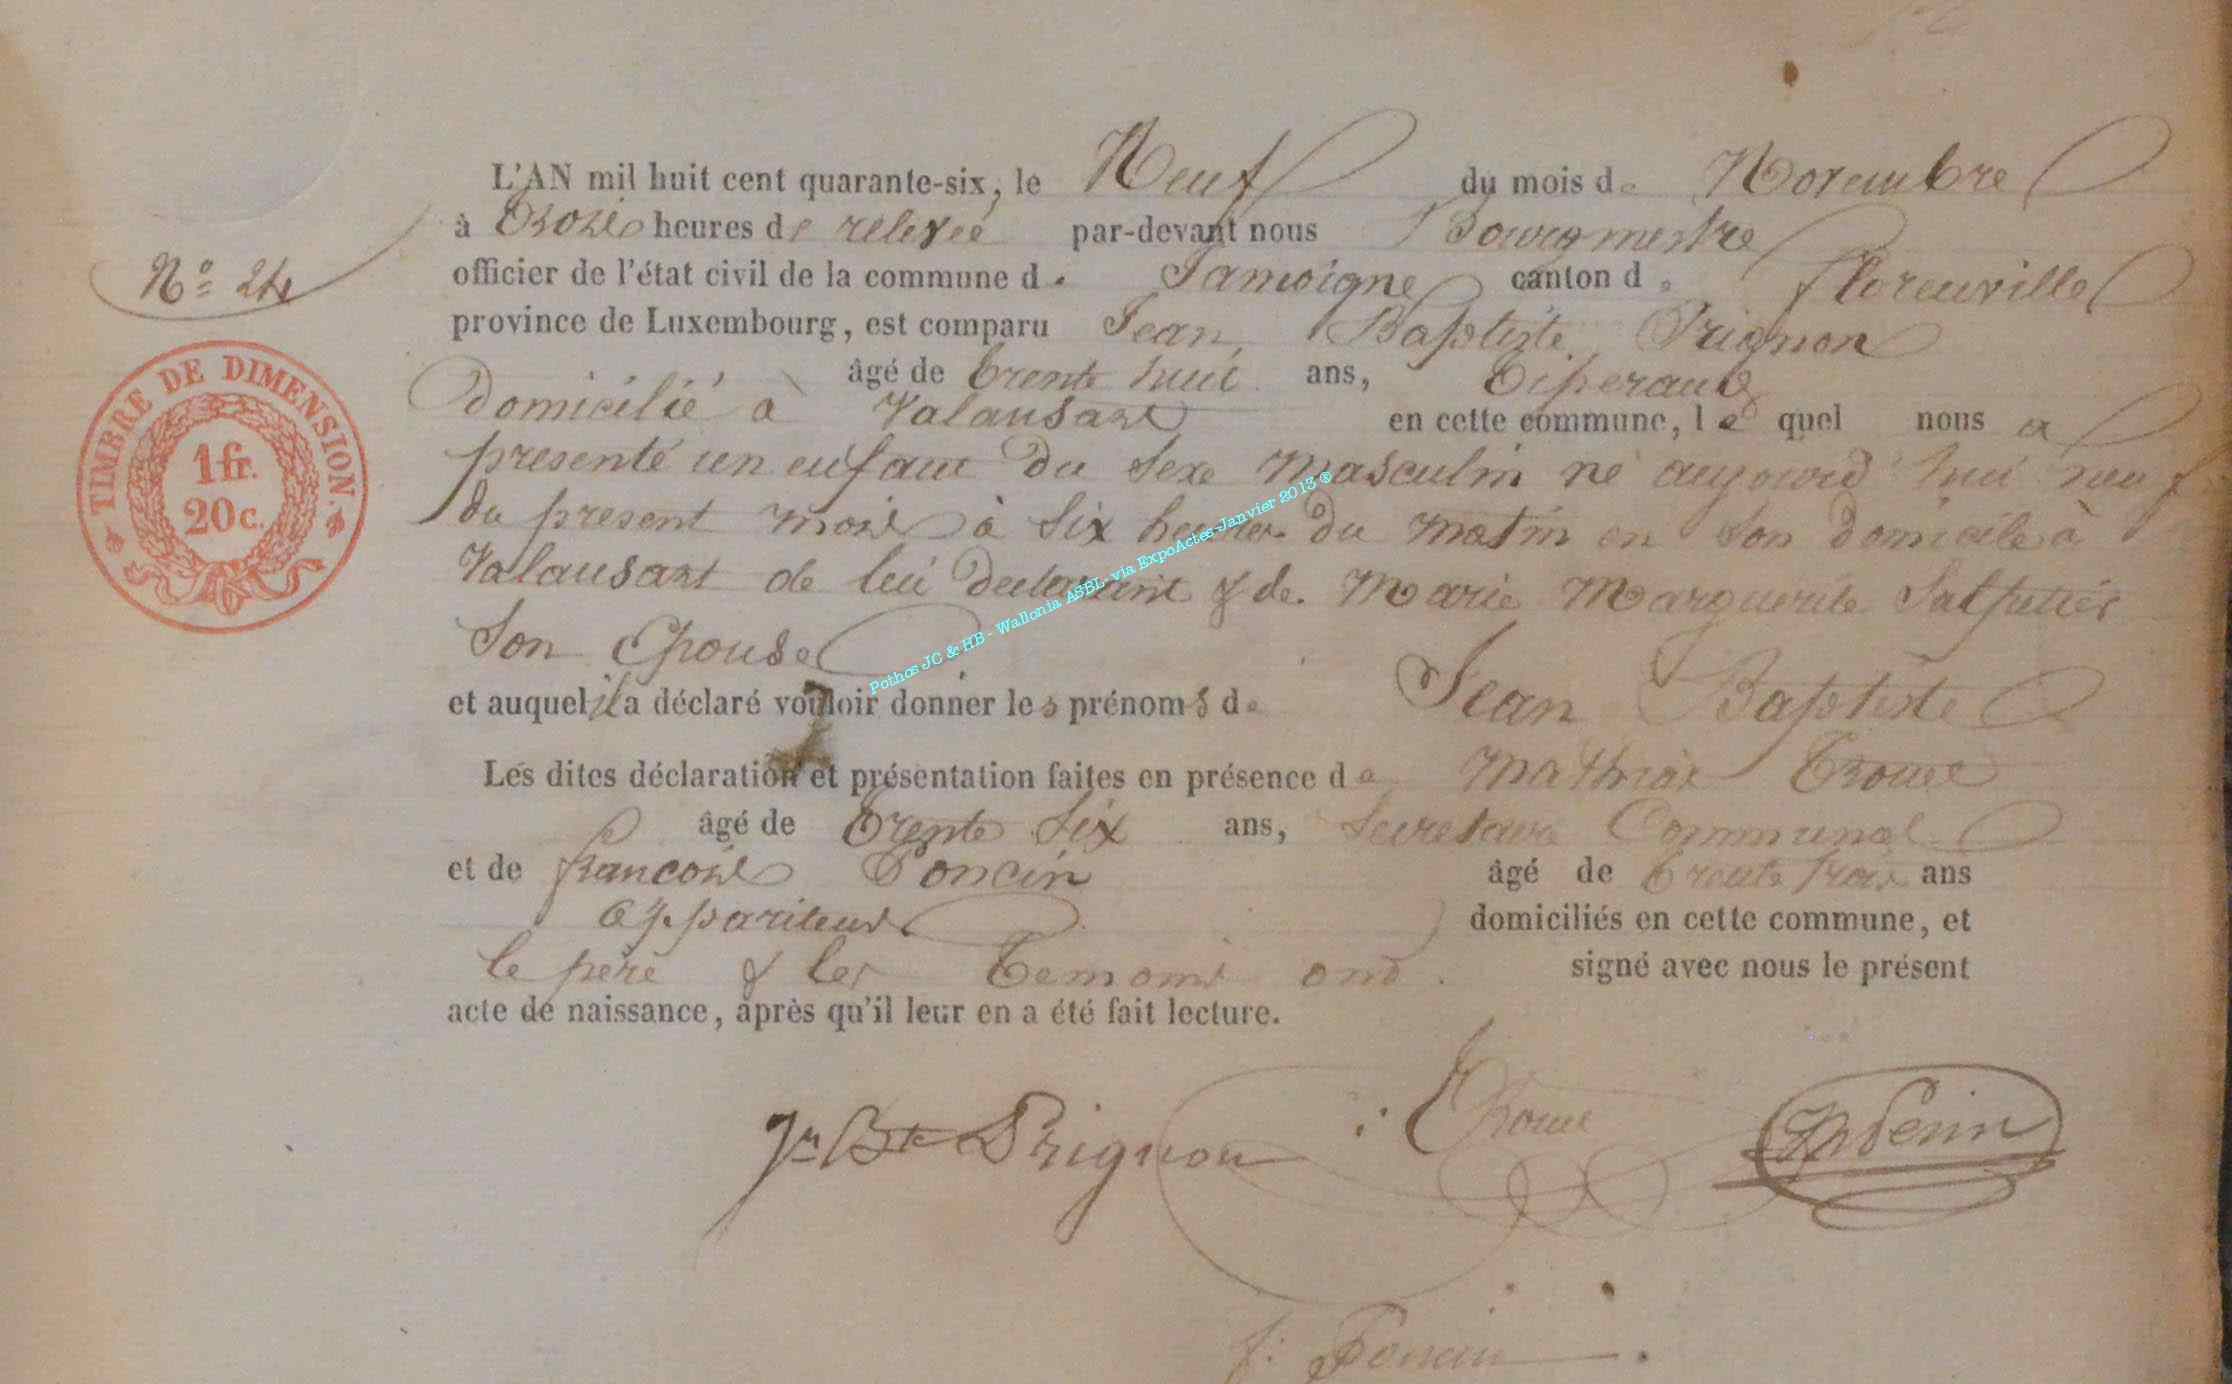 L'AN mil huit cent quarante-six, le Neuf du mois de Novembre
à trois heures de relevée par-devant nous Bourgmestre
officier de l'état civil de la commune de Jamoigne canton de florenville
N° 24
province de Luxembourg, est comparu Jean Baptiste Prignon
âgé de trente huit ans, Tisserand
domicilié à Valansart en cette commune, lequel nous a
présenté un enfant du sexe masculin né aujourd'hui neuf
du present mois à six heures du matin en son domicile à
Valansart de lui declarant & de Marie Marguerite Salpetier
son épouse
et auquel il a déclaré vouloir donner les prénoms de Jean Baptiste
Les dites déclaration et présentation faites en présence de Mathias
âgé de trente six ans, Secretaire Communal
et de françois Poncin âgé de trente trois ans
appariteur domiciliés en cette commune, et
le père & les temoins ont signé avec nous le présent
acte de naissance, après qu'il leur en a été fait lecture.
Jn Bte Prignon
f: Poncin
TIMBRE DE DIMENSION.
1 fr.
20 c.
Pothos JC & HB - Wallonia ASBL- via ExpoActes-Janvier 2013 ®